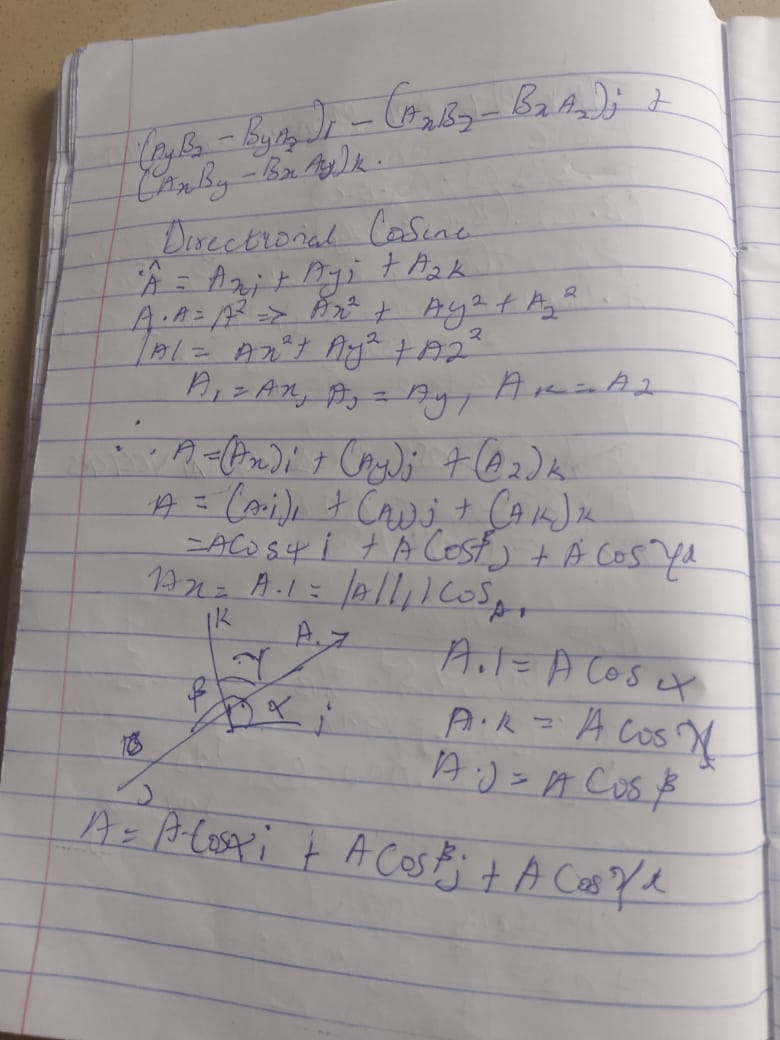 (AyB2 - ByA2)i - (AxB2 - BxA2)j +
(AxBy - BxAy)k.
Directional Cosine
Â = Axi + Ayj + A2k
A.A = A² => Ax² + Ay² + A2²
|A| = Ax² + Ay² + A2²
A, = Ax, AJ = Ay, AK = A2
∴ A = (Ax)i + (Ay)j + (A2)k
A = (A.i)i + (AJ)j + (AK)k
= A Cos α i + A Cos β j + A Cos γ k
Ax = A.1 = |A||,| Cos
K
A.
γ
β
α
i
B
J
A.1 = A Cos α
A.K = A Cos γ
A.J = A Cos β
A = A Cos α i + A Cos β j + A Cos γ k